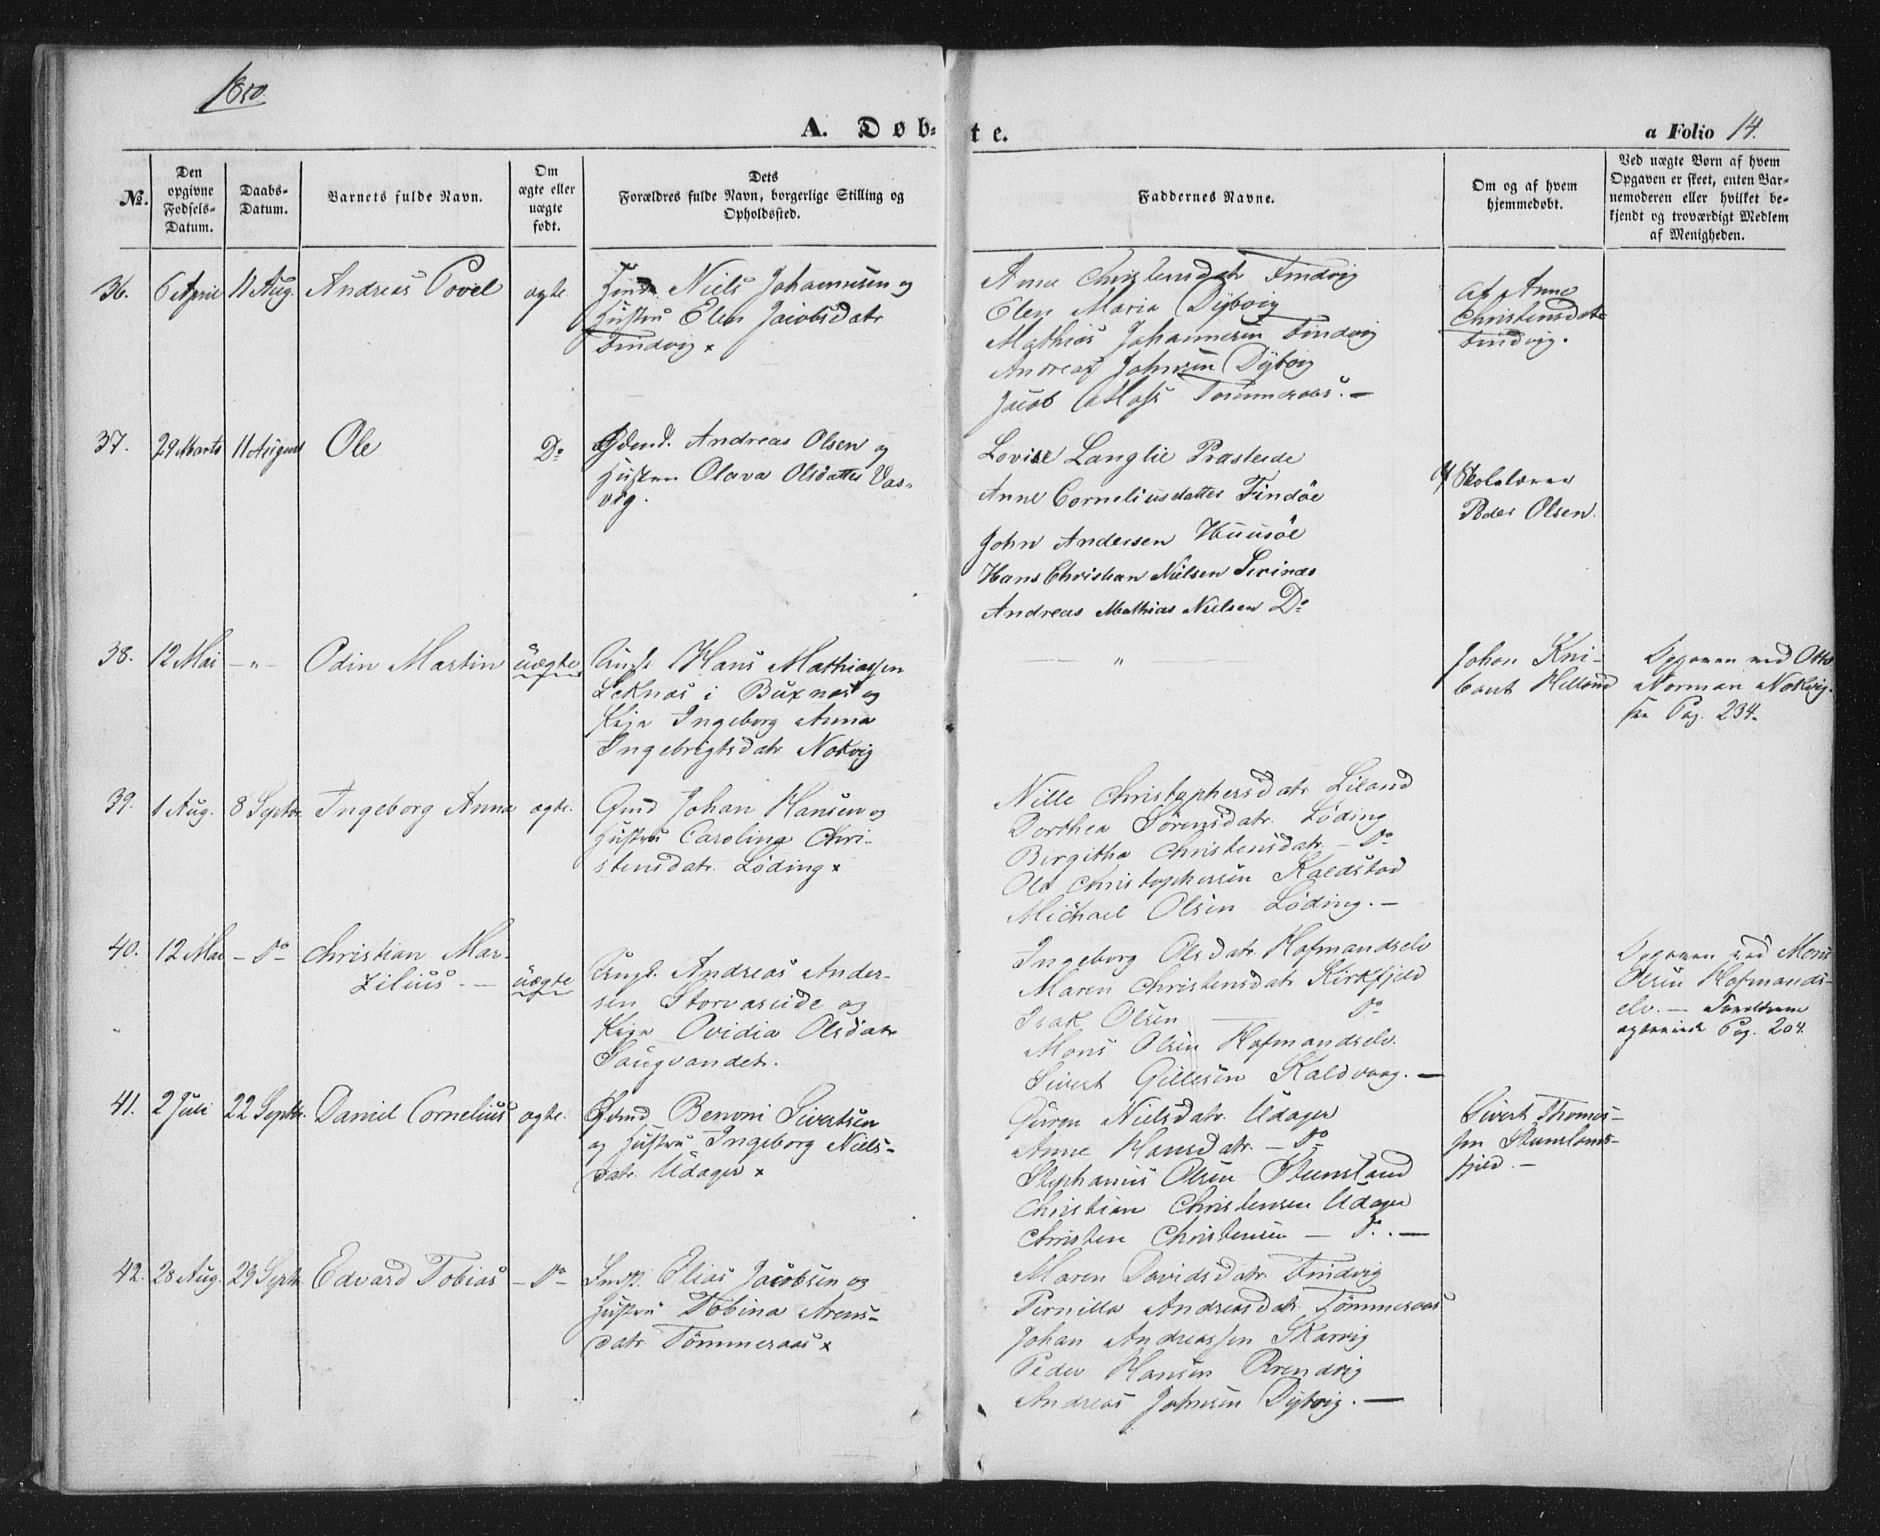 1850.
A. Døbte.
a Folio 14.
No.
Den opgivne Fødsels-Datum.
Daabs-Datum.
Barnets fulde Navn.
Om ægte eller uægte født.
Dets Forældres fulde Navn, borgerlige Stilling og Opholdssted.
Faddernes Navne.
Om og af hvem hjemmedøbt.
Ved uægte Børn af hvem Opgaven er skeet, enten Barnemoderen eller hvilket bekjendt og troværdigt Medlem af Menigheden.
36. 6 April 11 Aug. Andreas Povel ægte
Niels Johannesen og
Hustru Elen Jacobsdatr
Findvig x
Anne Christensdatr Findvig
Elen Maria Dybvig
Mathias Johannesen Findvig
Andreas Johnsen Dybvig
Jacob Moses Tømmeraas. –
af Anne
Christensdatr
Findvig.
37. 29 Marts 11 August Ole Do
Andreas Olsen og
Hustru Olava Olsdatter Vas-
vig.
Lovise Langlie Præsteide
Anne Corneliusdatter Findöe
John Andersen Huusöe
Hans Christian Nielsen
Andreas Mathias Nielsen Do
af Skolelærer
Peder Olsen.
38. 12 Mai – " – Odin Martin uægte
Ungk. Hans Mathiassen
Leknæs i Buxnæs og
Pige Ingeborg Anna
Ingebrigtsdatr Nokvig
– " –
Johan Kni-
Opgaven ved Otto
Norman Nokvig.
see Pag. 234.
39. 1 Aug. 8 Septbr. Ingeborg Anna ægte.
Gmd Johan Hansen og
Hustru Carolina Chri-
stensdatr. Løding x
Nille Christophersdatr. Liland
Dorthea Sörensdatr. Løding
Birgitha Christensdatr. – Do
Ole Christophersen Kaldstad
Michael Olsen Løding. –
40. 12 Mai – Do Christian Mar-
zilius. – uægte
Ungk. Andreas Ander-
sen Storvaseide og
Pige Ovidia Olsdatr
Saugvandet.
Ingeborg Olsdatr. Hofmandselv
Maren Christensdatr. Kirkfjeld
Isak Olsen – Do
Mons Olsen Hofmandselv.
Sivert Gillesen Kaldvaag. –
Opgaven ved Mons
Olsen Hofmands-
elv. – Forældrene
Pag. 204.
41. 2 Juli 22 Septbr. Daniel Cornelius ægte.
Gmd Benoni Sivertsen
og Hustru Ingeborg Niels-
datr. Udager x
Nielsdatr. Udager
Anne Hansdatr. – Do
Stephanus Olsen
Christian Christensen Udager
Christen Christensen – Do. –
Sivert Thomes-
sen
fjeld. –
42. 28 Aug. 29 Septr. Edvard Tobias – Do –
Elias Jacobsen og
Hustru Tobina Arens-
datr. Tömmeraas x
Maren Davidsdatr. Findvig
Pernilla Andreasdatr. Tömmeraas
Johan Andreassen Skarvig
Peder Hansen
Andreas Johnsen Dybvig. –